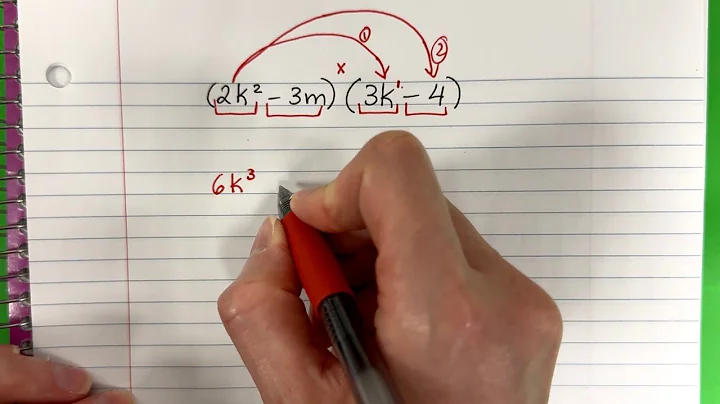 ① ②
x
(2k² - 3m) (3k¹ - 4)
6k³